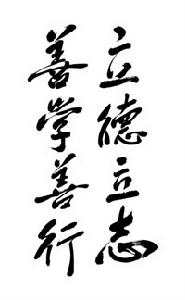 立德立志
善学善行